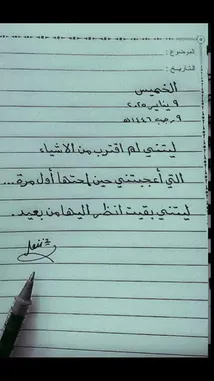 الموضوع :
التاريخ :
الخميس
٩ يناير ٢٠٢٥
٩ رجب ١٤٤٦هـ
ليتني لم اقترب من الاشياء
التي أعجبتني حين لمحتها أول مرة...
ليتني بقيت انظر اليها من بعيد.